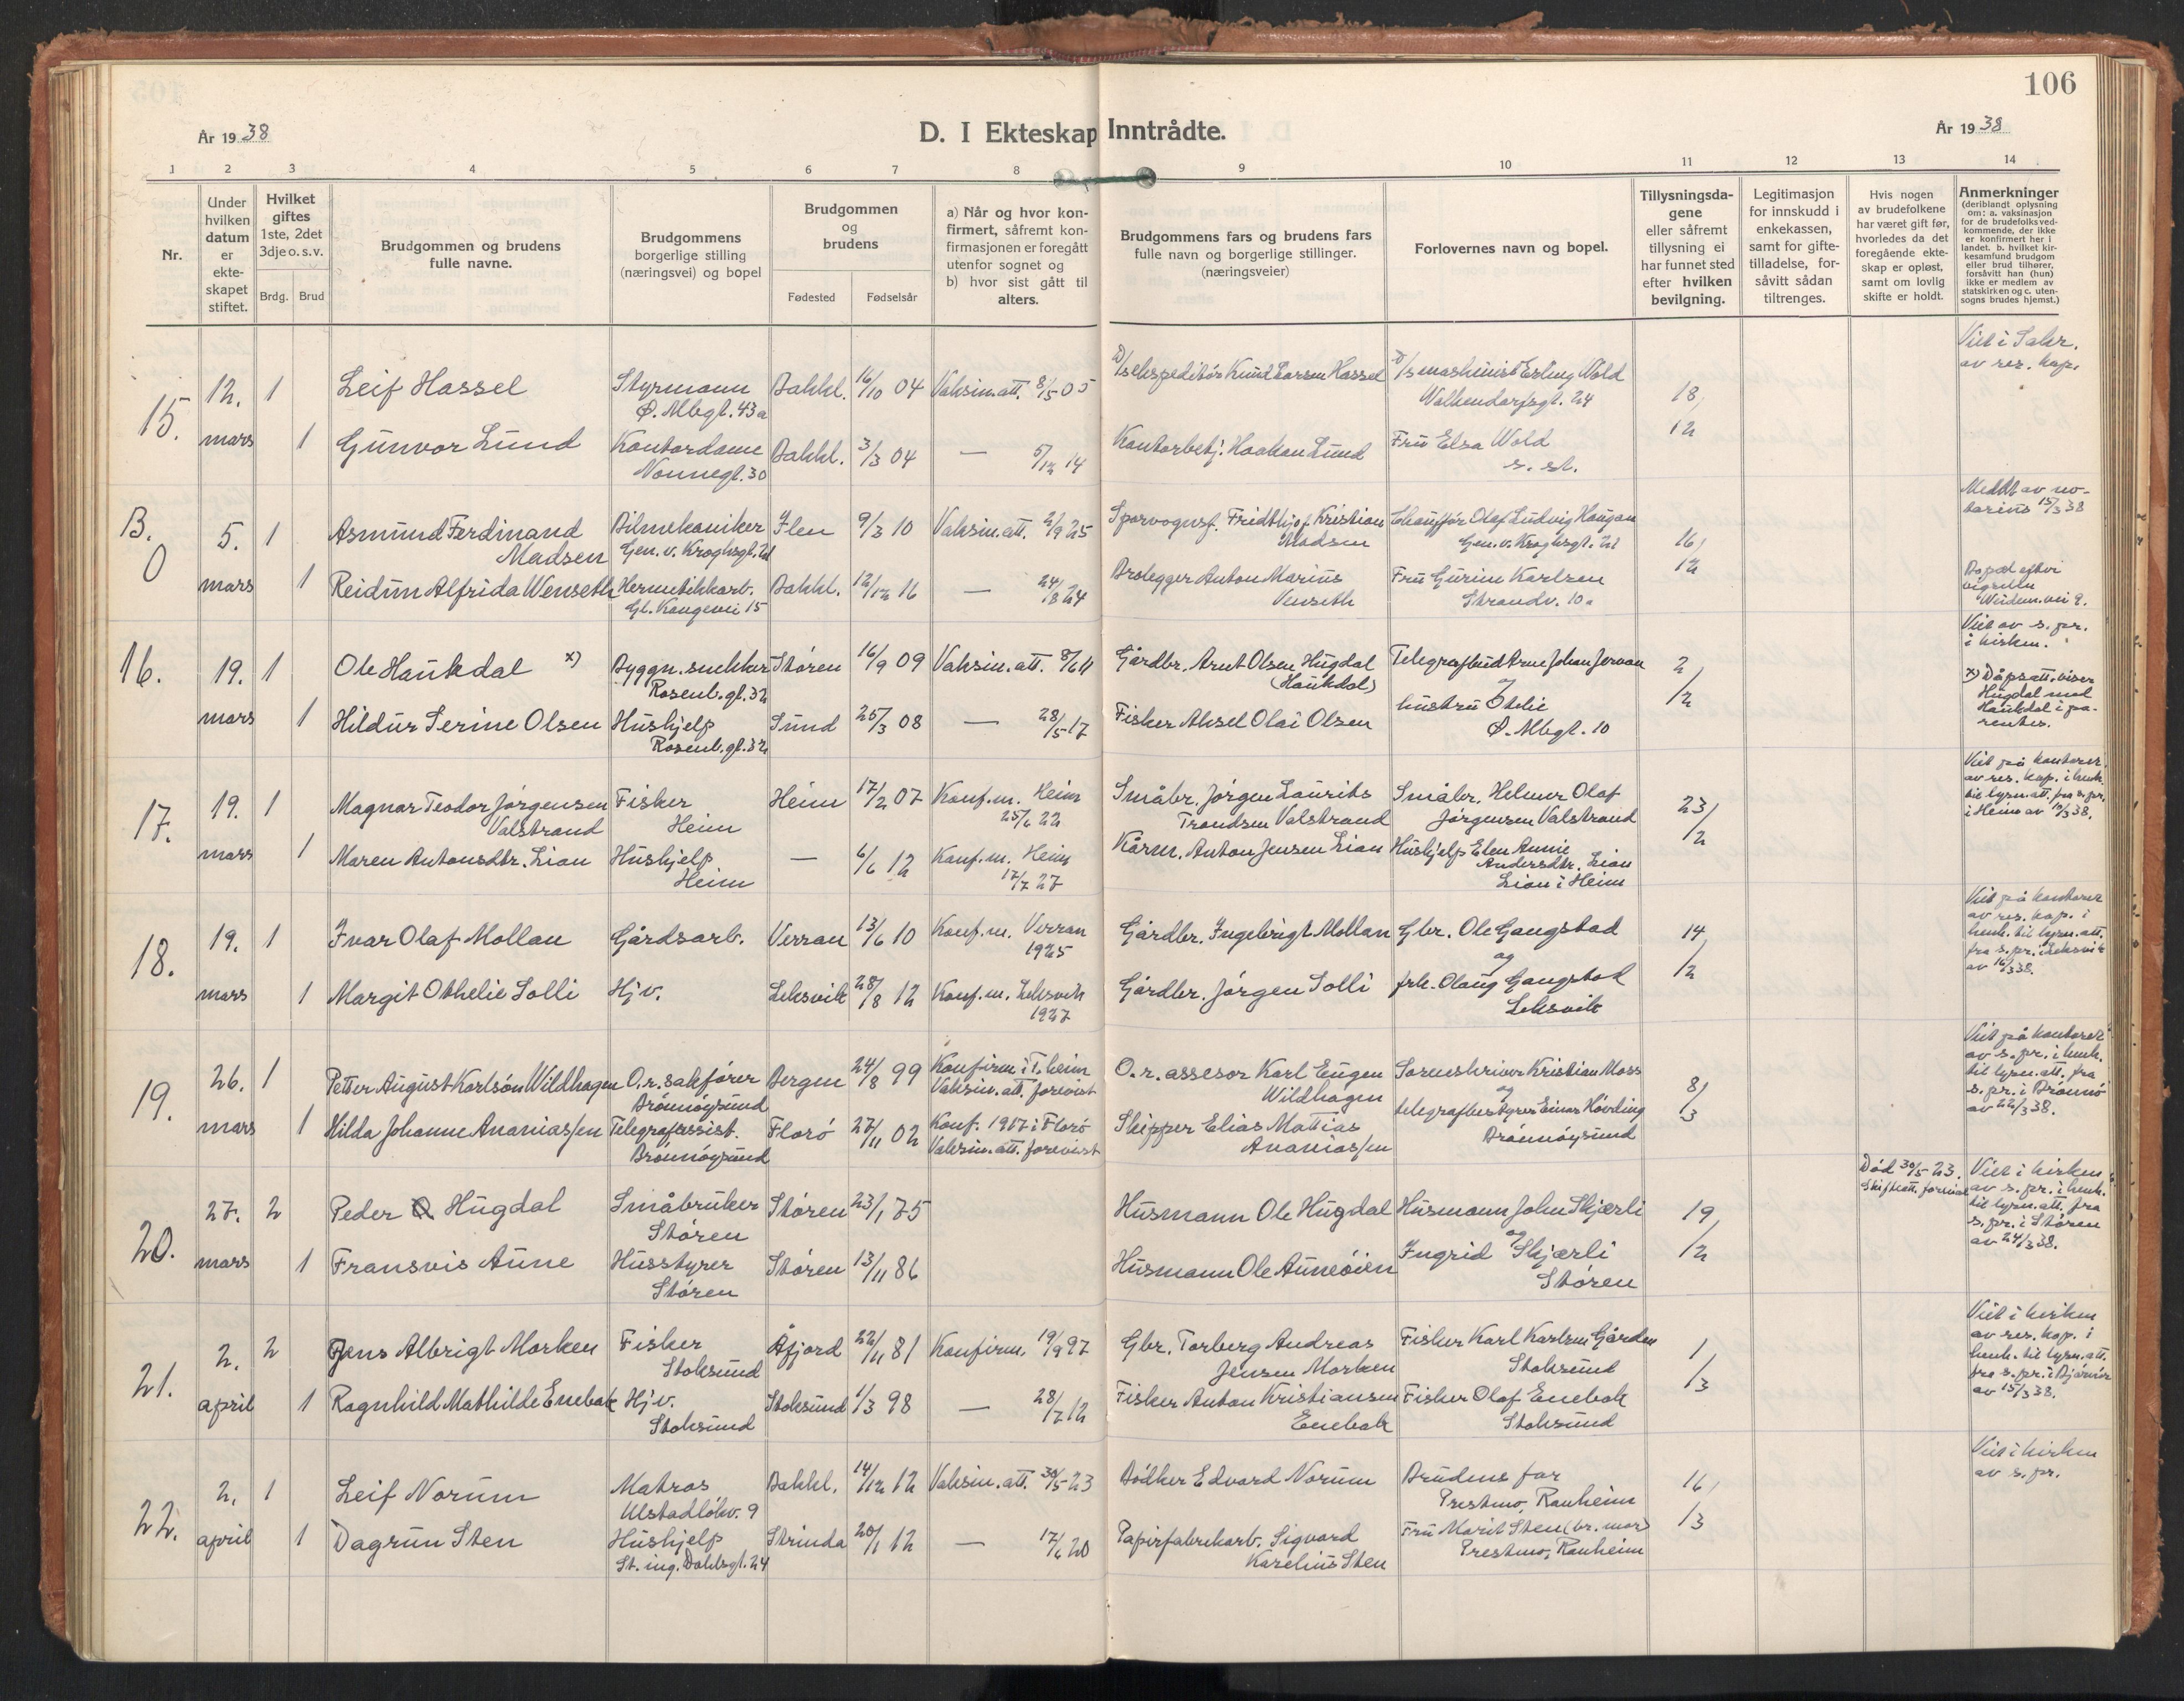 106
År 1938
D. I Ekteskap Inntrådte.
År 1938
1 2 3 4 5 6 7 8 9 10 11 12 13 14
Nr.
Under hvilken datum er ekte- skapet stiftet.
Hvilket giftes 1ste, 2det 3dje o. s. v.
Brdg. Brud
Brudgommen og brudens fulle navne.
Brudgommens borgerlige stilling (næringsvei) og bopel
Brudgommen og brudens
Fødested Fødselsår
a) Når og hvor kon- firmert, såfremt kon- firmasjonen er foregått utenfor sognet og b) hvor sist gått til alters.
Brudgommens fars og brudens fars fulle navn og borgerlige stillinger. (næringsveier)
Forlovernes navn og bopel.
Tillysningsda- gene eller såfremt tillysning ei har funnet sted efter hvilken bevilgning.
Legitimasjon for innskudd i enkekassen, samt for gifte- tilladelse, for- såvitt sådan tiltrenges.
Hvis nogen av brudefolkene har været gift før, hvorledes da det foregående ekte- skap er opløst, samt om lovlig skifte er holdt.
Anmerkninger (deriblandt oplysning om: a. vaksinasjon for de brudefolks ved- kommende, der ikke er konfirmert her i landet. b. hvilket kir- kesamfund brudgom eller brud tilhører, forsåvitt han (hun) ikke er medlem av statskirken og c. uten- sogns brudes hjemst.)
15. 12. 1 Leif Hassel Styrmann Bakkl. 16/10 04 Vaksin.att. 8/5 05 Knud Larsen Hassel Erling Wold 18/
Ø. Mbgt. 43a 24
mars 1 Gunvor Lund Kontordame Bakkl. 3/3 04 — 5/12 14 Kontorbetj. Haakon Lund Fru Elsa Wold 12
Nonnegt. 30 s. st.
av res. kap.
B. 0 5. 1 Asmund Ferdinand Madsen Bilmekaniker Ilen 9/3 10 Vaksin.att. 2/9 25 Sporvognsf. Fridthjof Kristian Madsen Chauffør Olaf Ludvig Haugan 16/
Gen. v. Kroghsgt. 21 Gen. v. Kroghsgt. 21
mars 1 Reidun Alfrida Wenseth Hermetikkarb. Bakkl. 12/12 16 — 24/8 24 Brolegger Anton Marius Venseth Fru Gurine Karlsen 12
Gl. Kongevei 15 Strandv. 10a
Meddt av no-
tarius 15/3 38
Bopæl efter
vigselen
16. 19. 1 Ole Haukdal x) Byggn.snekker Støren 16/9 09 Vaksin.att. 8/6 11 Gårdbr. Arnt Olsen Hugdal (Haukdal) Telegrafbud Arne Johan Jervan 2/
Rosenb.gt. 32 og
mars 1 Hildur Serine Olsen Hushjelp Sund 25/3 08 — 28/5 17 Fisker Aksel Olai Olsen hustru Otelie 12
Rosenb.gt. 32 Ø. Mbgt. 10
Viet av s. pr.
i kirken.
x) Dåpsatt. viser
Hugdal med
Haukdal i pa-
rentes.
17. 19. 1 Magnar Teodor Jørgensen Valstrand Fisker Heim 17/2 07 Konf. m. Heim 25/6 22 Småbr. Jørgen Laurits Trondsen Valstrand Småbr. Helmer Olaf Jørgensen Valstrand 23/
Heim
mars 1 Maren Antonsdtr. Lian Hushjelp — 6/6 12 Konf. m. Heim 17/7 27 Kårm. Anton Jensen Lian Hushjelp Elen Annie Andersdtr. Lian 2
Heim Lian i Heim
Viet på kontoret
av res. kap. i henh.
til lysn.att. fra s. pr.
i Heim av 15/3 38.
18. 19. 1 Ivar Olaf Mollan Gårdsarb. Verran 13/6 10 Konf. m. Verran 1925 Gårdbr. Ingebrigt Mollan Gbr. Ole Gangstad 14
og
mars 1 Margit Othelie Solli Hjv. Leksvik 28/8 12 Konf. m. Leksvik 1927 Gårdbr. Jørgen Solli frk. Olaug Gangstad /2
Leksvik
Viet på kontoret
av res. kap. i
henh. til lysn.att.
fra s. pr. i Leksvik
av 16/3 38.
19. 26. 1 Petter August Karlsøn Wildhagen O.r. sakfører Bergen 24/8 99 Konfirm i T.heim O.r. assesor Karl Eugen Wildhagen Sorenskriver Kristian Moss 8/
Brønnøysund Vaksin.att. forevist og
mars 1 Hilda Johanne Ananiassen Telegrafassist. Florø 27/11 02 Konf. 1917 i Florø Skipper Elias Mattias Ananiassen telegrafbestyrer Einar Høvding 3
Brønnøysund Vaksin.att. forevist Brønnøysund
Viet på kontoret
av s. pr. i henh.
til lysn.att. fra
s. pr. i Brønnø
av 22/3 38.
20. 27. 2 Peder O Hugdal Småbruker Støren 23/1 75 Husmann Ole Hugdal Husmann John Skjærli 19/
Støren og
mars 1 Fransvis Aune Husstyrer Støren 13/11 86 Husmann Ole Auneøien Ingrid Skjærli /2
Støren Støren
Død 30/5 23.
Skifteatt. forevist
Viet i kirken
av s. pr. i henh.
til lysn.att. fra
s. pr. i Støren
av 24/3 38.
21. 2. 2 Jens Albrigt Morken Fisker Åfjord 22/11 81 Konfirm. 19/9 97 Gbr. Torberg Andreas Jensen Morken Fisker Karl Karlsen Gården 1/
Stoksund Stoksund
april 1 Ragnhild Mathilde Enebak Hjv. Stoksund 1/3 98 — 28/7 12 Fisker Anton Kristiansen Enebak Fisker Olaf Enebak 3
Stoksund Stoksund
Viet i kirken
av res. kap. i
henh. til lysn.att.
fra s. pr. i Bjørnør
av 15/3 38.
22. 2. 1 Leif Norum Matros Bakkl. 14/12 12 Vaksin.att. 30/5 23 Bødker Edvard Norum Brudens far 16/
9 Prestmo, Ranheim
april 1 Dagrun Sten Hushjelp Strinda 20/1 12 — 17/6 20 Papirfabrikarb. Sigvard Karelius Sten Fru Marit Sten (br. mor) 3
St. ing. Dahlsgt. 24 Prestmo, Ranheim
Viet i kirken
av s. pr.